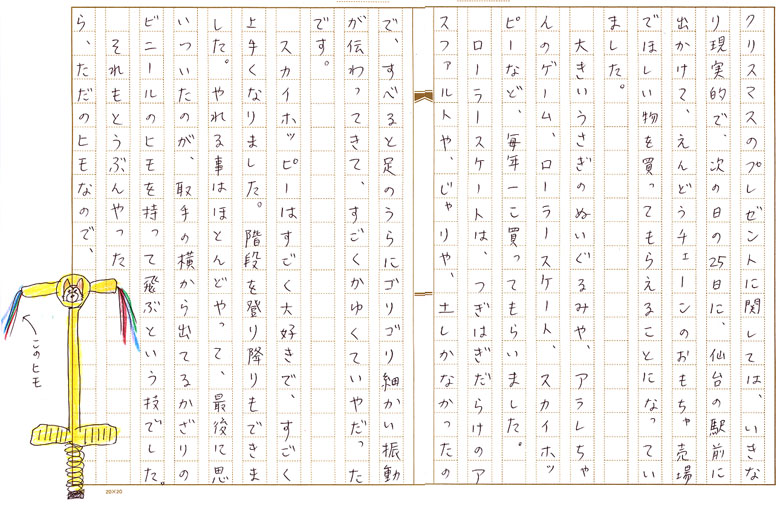 クリスマスのプレゼントに関しては、いきな
り現実的で、次の日の25日に、仙台の駅前に
出かけて、えんどうチェーンのおもちゃ売場
でほしい物を買ってもらえることになってい
ました。
大きいうさぎのぬいぐるみや、アラレちゃ
んのゲーム、ローラースケート、スカイホッ
ピーなど、毎年一こ買ってもらいました。
ローラースケートは、つぎはぎだらけのア
スファルトや、じゃりや、土しかなかったの
で、すべると足のうらにゴリゴリ細かい振動
が伝わってきて、すごくかゆくていやだった
です。
スカイホッピーはすごく大好きで、すごく
上手くなりました。階段を登り降りもできま
した。やれる事はほとんどやって、最後に思
いついたのが、取手の横から出てるかざりの
ビニールのヒモを持って飛ぶという技でした。
それもとうぶんやった
ら、ただのヒモなので、
このヒモ
20×20